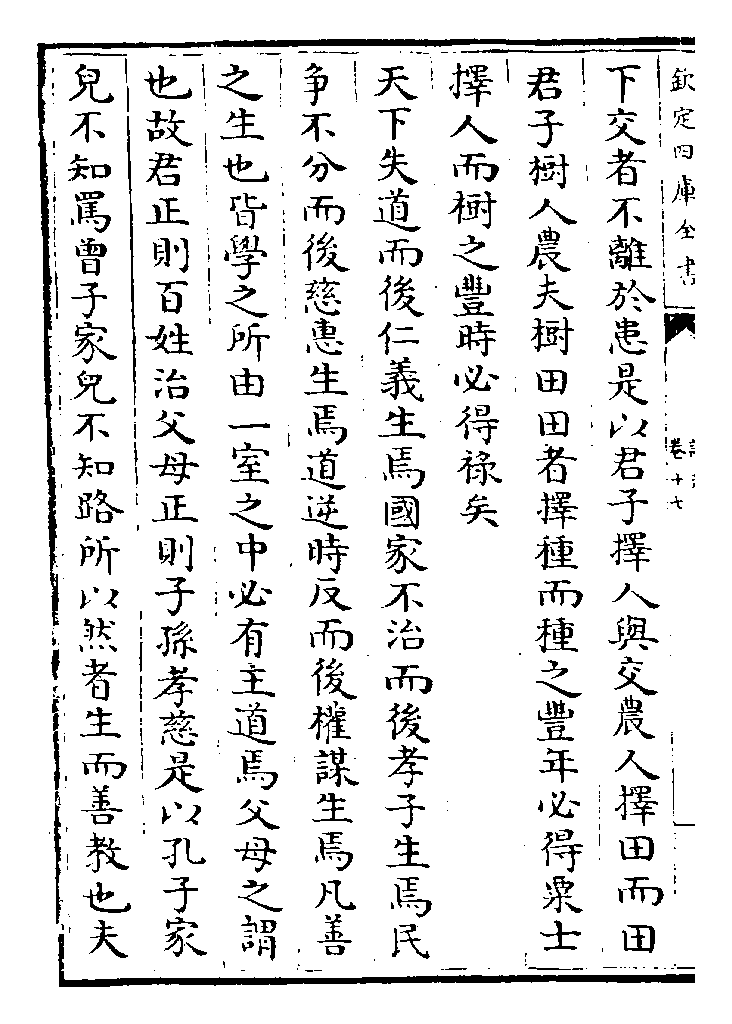 欽定四庫全書
卷十七
下交者不離於患是以君子擇人與交農人擇田而田
君子樹人農夫樹田田者擇種而種之豐年必得粟士
擇人而樹之豐時必得禄矣
天下失道而後仁義生焉國家不治而後孝子生焉民
争不分而後慈惠生焉道逆時反而後權謀生焉凡善
之生也皆學之所由一室之中必有主道焉父母之謂
也故君正則百姓治父母正則子孫孝慈是以孔子家
兒不知罵曾子家兒不知路所以然者生而善教也夫